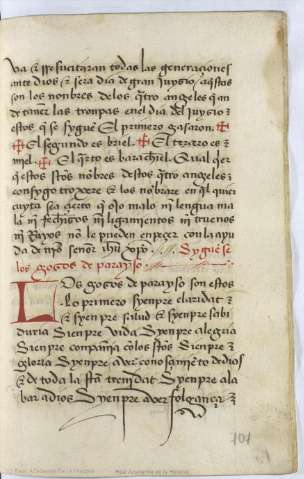 va & rresucitaran todas las generaciones
ante dios & sera dia de gran juyzio aqstos
son los nonbres delos qtro angeles q an
de tañer las tronpas en el dia del Juyzio &
estos q se sygue El primero gasaron
El segundo es briel. El terzero es
miel. El qrto es barachiel. Qual qer
q estos stos nōbres destos qtro angeles
consygo troxere & los nōbrare en ql quier
cuyta sea çierto q ojo malo ni lengua ma
la ni fechizos ni ligamientos ni truenos
ni Rayos no le pueden enpeçer con la ayu
da de nro señor ihu xpo. Syguese
los gozos de parayso
Los gozos de parayso son estos
Lo primero syenpre claridat &
& syenpre salud & syenpre sabi
duria Sienpre vida Syenpre alegria
Sienpre conpañia cōlos stos Sienpre
gloria Syenpre aver conosçimiēto de dios
& de toda la sta trenidat Syenpre ala
bar a dios Syenpre aver folgança &
101
Real Academia de la Historia